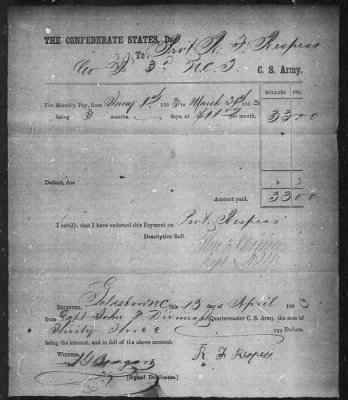 THE CONFEDERATE STATES, Dr.
To Prvt. R. F. Respess
Co 3d N.C.T. C. S. Army.
DOLLARS CTS.
For Monthly Pay, from Jany 1st 1863 to March 31st 1863
being 3 months, days, at $11 per month, 33 00
Deduct, due
Amount paid, 33 00
I certify, that I have endorsed this Payment on Prvt. Respess'
Descriptive Roll.
RECEIVED, Goldsboro NC this 13 day of April 1863
from Capt John Quartermaster C. S. Army, the sum of
Thirty Three Dollars,
being the amount, and in full of the above account.
Witness
R F Respess
[Signed Duplicates.]